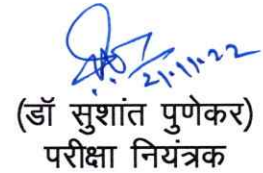 21.11.22
(डॉ सुशांत पुणेकर)
परीक्षा नियंत्रक